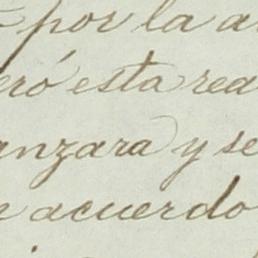 por la a
eró esta rea
anzara y se
acuerdo